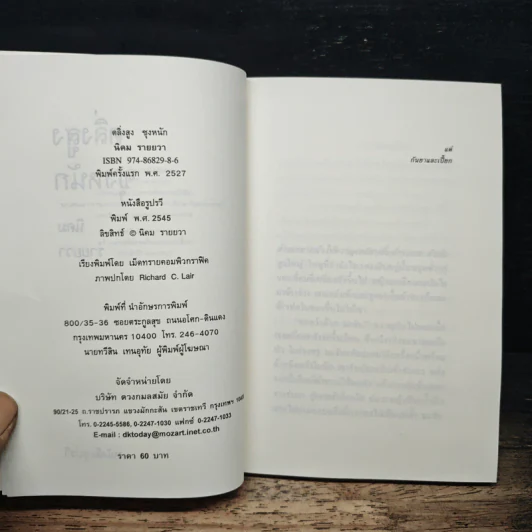 ตลิ่งสูง ซุงหนัก
นิคม รายยวา
ISBN 974-86829-8-6
พิมพ์ครั้งแรก พ.ศ. 2527
หนังสือรูปรวี
พิมพ์ พ.ศ. 2545
ลิขสิทธิ์ © นิคม รายยวา
เรียงพิมพ์โดย เม็ดทรายคอมพิวกราฟิค
ภาพปกโดย Richard C. Lair
พิมพ์ที่ นำอักษรการพิมพ์
800/35-36 ซอยตระกูลสุข ถนนอโศก-ดินแดง
กรุงเทพมหานคร 10400 โทร. 246-4070
นายทวีสิน เทนอุทัย ผู้พิมพ์ผู้โฆษณา
จัดจำหน่ายโดย
บริษัท ดวงกมลสมัย จำกัด
90/21-25 ถ.ราชปรารภ แขวงมักกะสัน เขตราชเทวี กรุงเทพฯ
โทร. 0-2245-5586, 0-2247-1030 แฟกซ์ 0-2247-1033
E-mail : dktoday@mozart.inet.co.th
ราคา 60 บาท
แด่
กันยาและเปี๊ยก